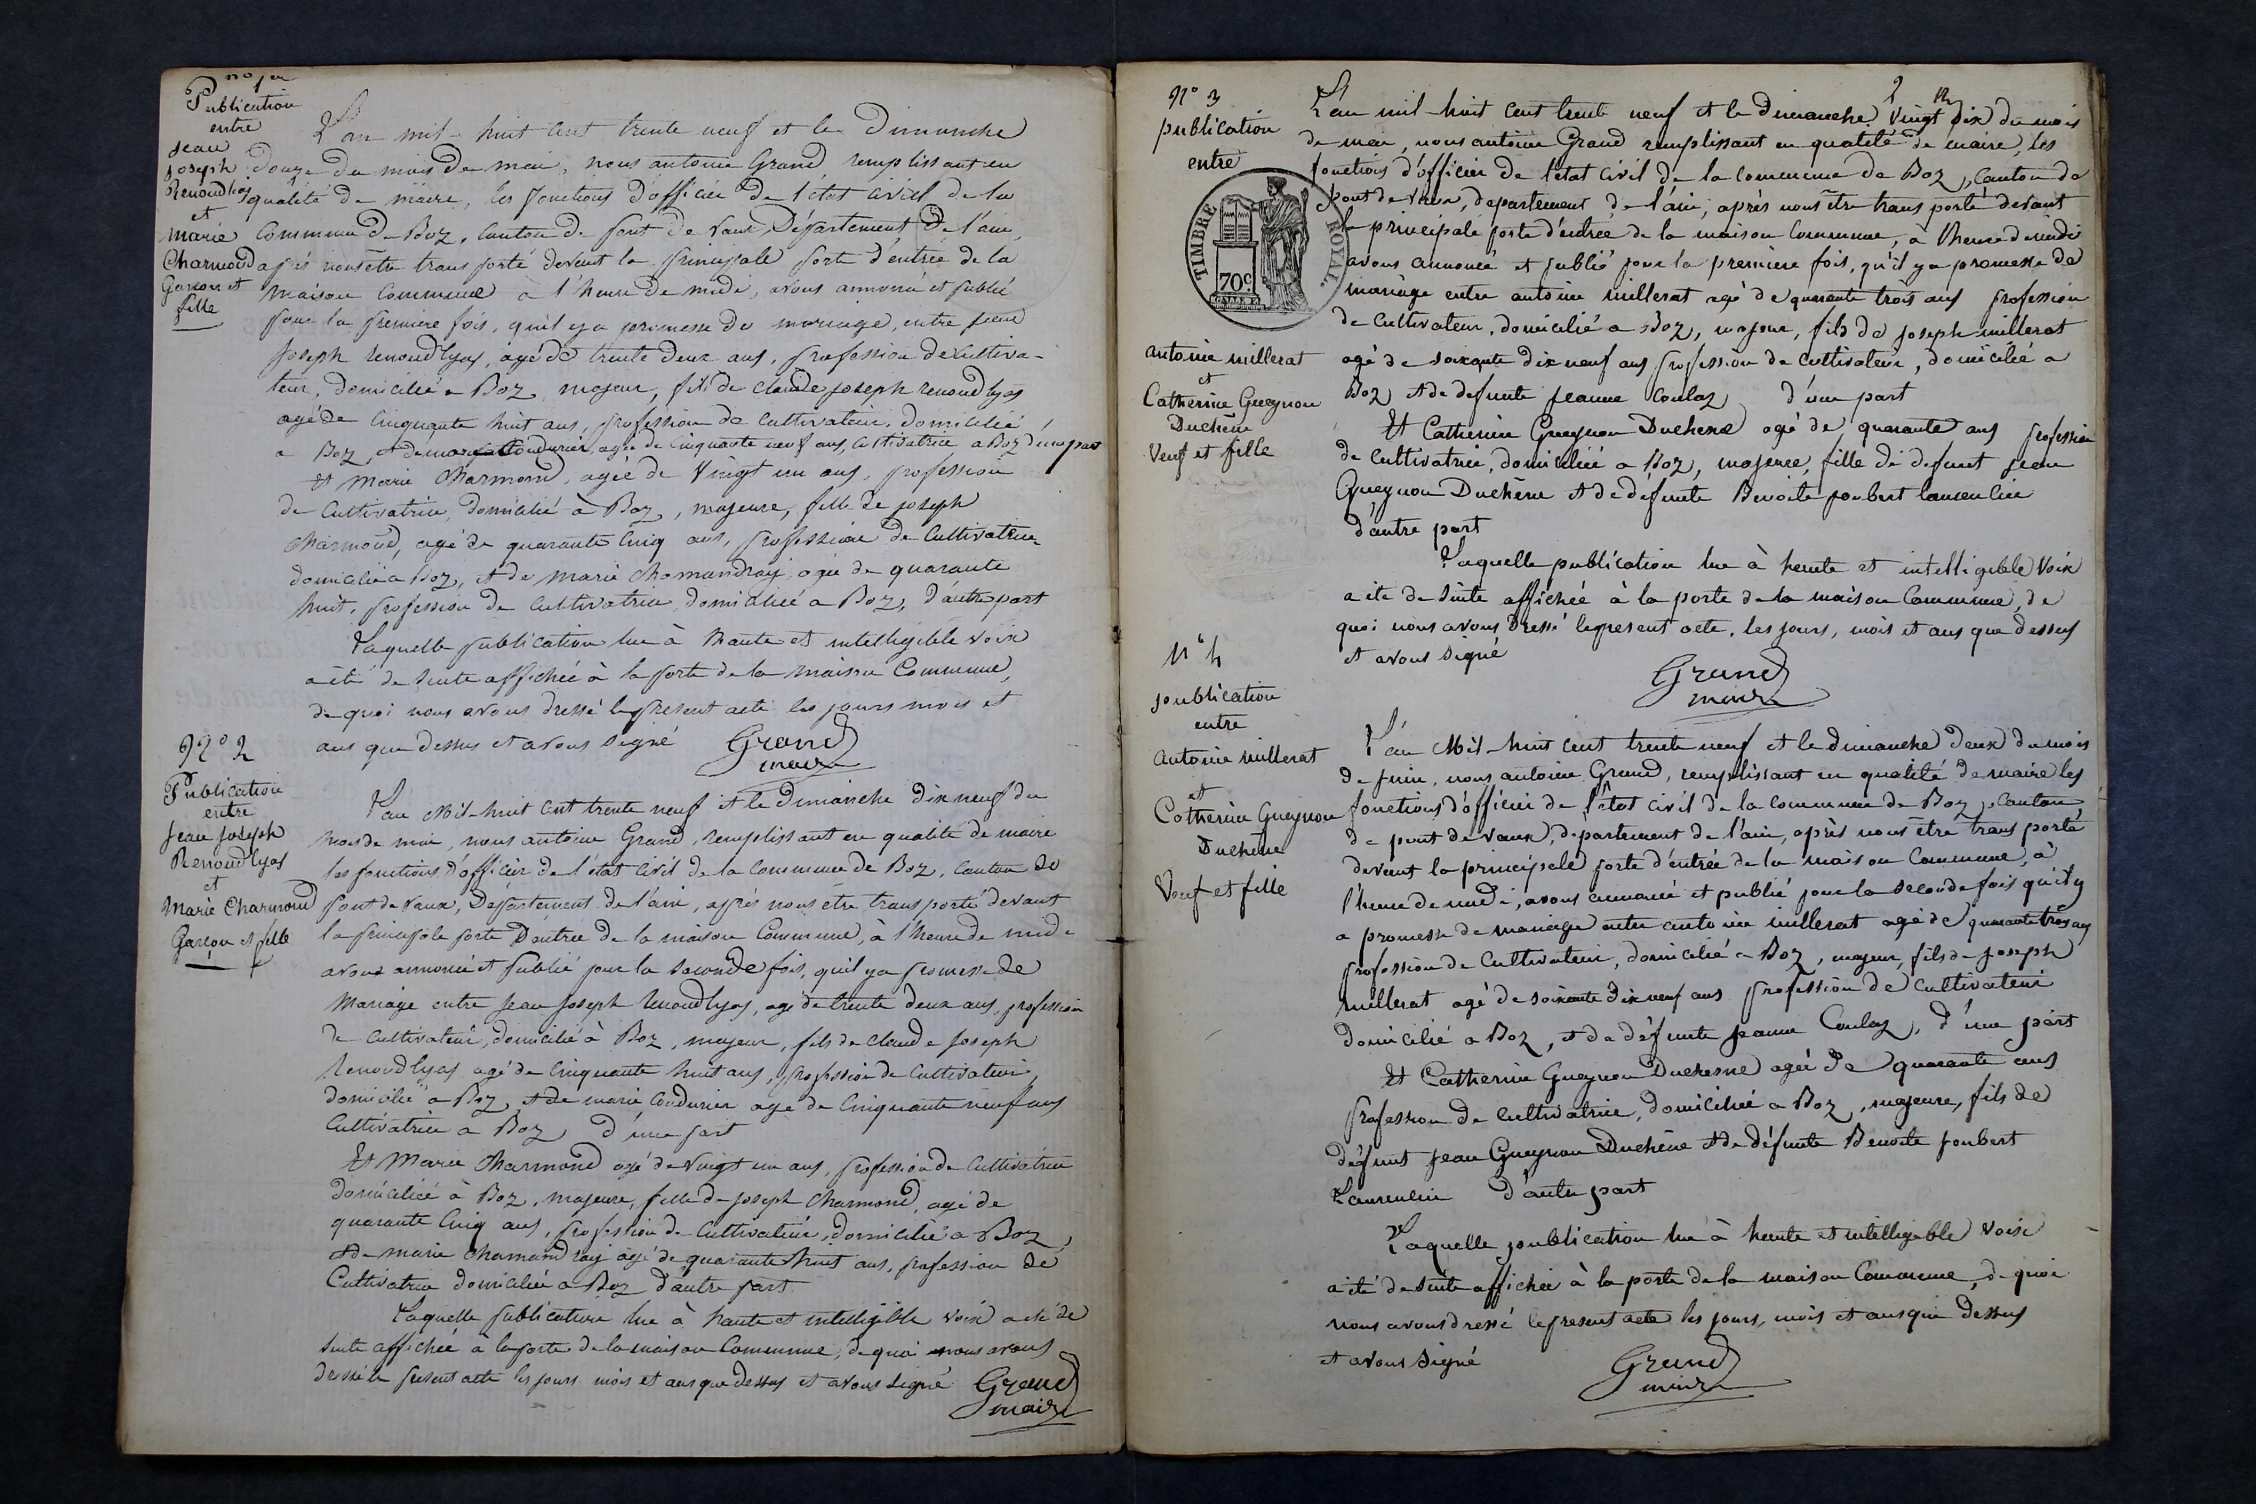 no 1er
Publication
entre
Jean
Joseph
Renoudlyas
et
Marie
Charmond
Garçon et
fille
L'an mil-huit cent trente neuf et le Dimanche
douze du mois de mai, nous antoine Grand remplissant en
qualité de maire, les fonctions d'officier de l'état civil de la
Commune de Boz, Canton de pont de vaux, Département De l'ain,
après nous être transporté devant la principale porte d'entrée de la
maison Commune a l'heure de midi, avons annoncé et publié
pour la premiere fois, qu'il y a promesse de mariage, entre jean
Joseph renoudlyas, agé de trente deux ans, profession de Cultiva-
teur, domicilié a Boz, majeur, fils de claude joseph renoudlyas
agé de Cinquante huit ans, profession de Cultivateur, domicilié
a Boz, et de marie Coudurier, agée de Cinquante neuf ans, cultivatrice a Boz d'une part
Et Marie Charmond, agée de Vingt un ans, profession
de Cultivatrice, domicilié à Boz, majeure, fille de joseph
Charmond, agé de quarante Cinq ans, profession de Cultivateur
domicilié a Boz, et de marie Chamandray, agée de quarante
huit, profession de Cultivatrice, domiciliée a Boz, d'autre part
Laquelle publication lue à haute et intelligible voix
a été de suite affichée à la porte de la maison Commune,
de quoi nous avons dressé le present acte les jours mois et
ans que dessus et avons signé Grand
maire
N° 2
Publication
entre
Jean Joseph
Renoudlyas
et
Marie Charmond
Garçon et fille
L'an Mil-huit cent trente neuf et le Dimanche dix neuf du
mois de mai, nous antoine Grand, remplissant en qualité de maire
les fonctions d'officier de l'état civil de la Commune de Boz, Canton de
pont de vaux, Département de l'ain, après nous être transporté devant
la principale porte D'entrée de la maison Commune, à l'heure de midi
avons annoncé et publié pour la seconde fois, qu'il y a promesse de
Mariage entre Jean Joseph renoudlyas, agé de trente deux ans, profession
de Cultivateur, domicilié à Boz, majeur, fils de claude Joseph
Renoudlyas agé de Cinquante huit ans, profession de Cultivateur,
domicilié a Boz, et de marie Coudurier agé de Cinquante neuf ans
Cultivatrice a Boz d'une part
Et Marie Charmond agé de vingt un ans, profession de Cultivatrice
domiciliée à Boz, majeure, fille de joseph Charmond, agé de
quarante Cinq ans, profession de Cultivateur, domicilié a Boz,
et de marie Chamandray agé de quarante huit ans, profession de
Cultivatrice domiciliée a Boz d'autre part
Laquelle publication lue à haute et intelligible voix a été de
suite affichée a la porte de la maison Commune, de quoi nous avons
dressé le present acte les jours mois et ans que dessus et avons signé Grand
maire
2
N° 3
publication
entre
TIMBRE ROYAL
70c
antoine millerat
et
Catherine Gueynon
Duchêne
Veuf et fille
L'an mil-huit cent trente neuf et le dimanche Vingt six du mois
de mai, nous antoine Grand remplissant en qualité de maire, les
fonctions d'officier de l'état civil de la commune de Boz, Canton de
pont de vaux, departement de l'ain, après nous être transporté devant
la principale porte d'entrée de la maison Commune, à l'heure de midi
avons annoncé et publié pour la premiere fois, qu'il y a promesse de
mariage entre antoine millerat agé de quarante trois ans profession
de Cultivateur, domicilié a Boz, majeur, fils de Joseph millerat
agé de soixante dix neuf ans profession de Cultivateur, domicilié a
Boz et de defunte Jeanne Coulaz d'une part
Et Catherine Gueynon Duchene agé de quarante ans profession
de Cultivatrice, domiciliée a Boz, majeure, fille de defunt jean
Gueynon Duchêne et de défunte Benoite joubert
d'autre part
Laquelle publication lue à haute et intelligible voix
a été de suite affichée à la porte de la maison Commune, de
quoi nous avons Dressé le present acte, les jours, mois et ans que dessus
et avons signé Grand
maire
N° 4
publication
entre
antoine millerat
et
Catherine Gueynon
Duchêne
Veuf et fille
L'an Mil-huit cent trente neuf et le dimanche deux du mois
de juin, nous antoine Grand, remplissant en qualité de maire les
fonctions d'officier de l'état civil de la commune de Boz, Canton
de pont de vaux, departement de l'ain, après nous être transporté
devant la principale porte d'entrée de la maison Commune, à
l'heure de midi, avons annoncé et publié pour la seconde fois qu'il y
a promesse de mariage entre antoine millerat agé de quarante trois ans
profession de Cultivateur, domicilié a Boz, majeur, fils de Joseph
millerat agé de soixante dix neuf ans profession de Cultivateur
domicilié a Boz, et de défunte jeanne Coulaz, d'une part
Et Catherine Gueynon Duchesne agée de quarante ans
profession de cultivatrice, domiciliée a Boz, majeure, fils de
défunt jean Gueynon Duchêne et de défunte Benoite joubert
d'autre part
Laquelle publication lue à haute et intelligible voix
a été de suite affichée à la porte de la maison Commune, de quoi
nous avons dressé le present acte les jours, mois et ans que dessus
et avons signé Grand
maire